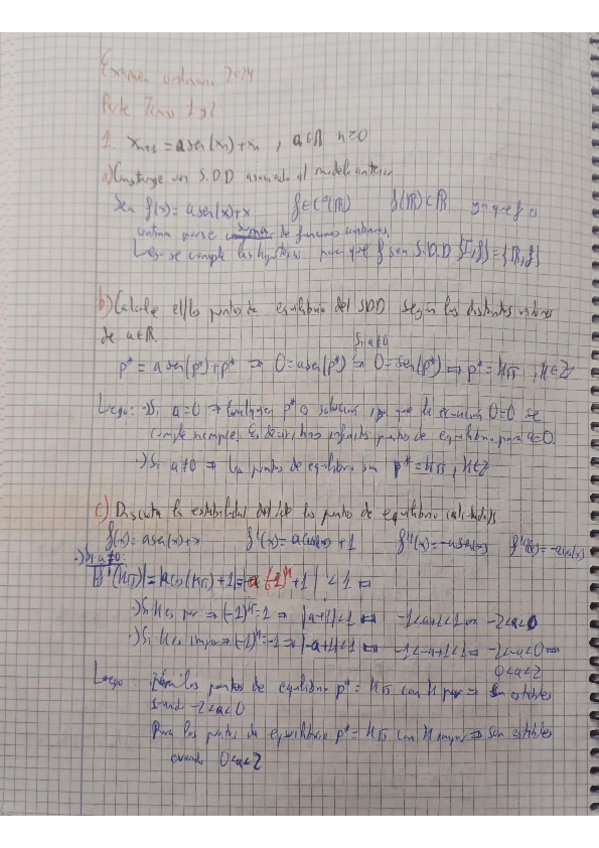 Examen ordinario 2024
Parte Temas 1 y 2
1. xₙ₊₁ = a sen(xₙ) + xₙ , a∈ℝ n≥0
a) Construye un S.D.D asociado al modelo anterior
Sea f(x) = a sen(x)+x f∈C⁰(ℝ) f(ℝ)⊂ℝ ya que f es
continua por ser suma de funciones continuas.
Luego se cumple las hipótesis para que f sea S.D.D {I,f} = {ℝ,f}
b) Calcule el/los puntos de equilibrio del SDD según los distintos valores
de a∈ℝ.
Si a≠0
p* = a sen(p*) + p* ⇒ 0 = a sen(p*) ⇒ 0 = sen(p*) ⇔ p* = kπ , k∈ℤ
Luego: ·) Si a=0 ⇒ Cualquier p* es solución ya que la ecuación 0=0 se
cumple siempre. Es decir infinitos puntos de equilibrio para a=0.
·) Si a≠0 ⇒ Los puntos de equilibrio son p* = kπ , k∈ℤ
c) Discuta la estabilidad del/de los puntos de equilibrio calculados
f(x) = a sen(x)+x f'(x) = a cos(x) + 1 f''(x) = -a sen(x) f'''(x) = -a cos(x)
·) Si a≠0:
|f'(kπ)| = |a cos(kπ)+1| = |a (-1)ᵏ +1| < 1 ⇔
·) Si k es par ⇒ (-1)ᵏ = 1 ⇒ |a+1| < 1 ⇔ -1<a+1<1 ⇔ -2<a<0
·) Si k es impar ⇒ (-1)ᵏ = -1 ⇒ |-a+1| < 1 ⇔ -1<-a+1<1 ⇔ -2<-a<0 ⇔
0<a<2
Luego: Para los puntos de equilibrio p* = kπ con k par ⇒ son estables
cuando -2<a<0
Para los puntos de equilibrio p* = kπ con k impar ⇒ son estables
cuando 0<a<2